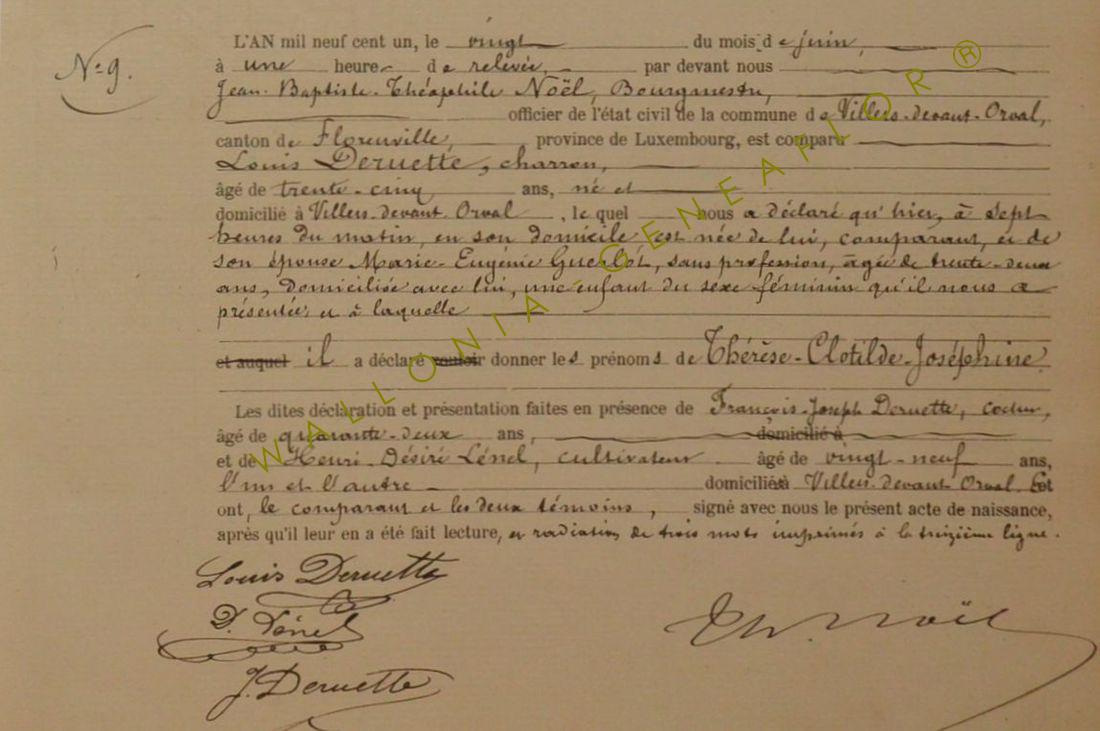 N° 9.
L'AN mil neuf cent un, le vingt du mois de juin,
à une heure de relevée, par devant nous
Jean-Baptiste-Théophile Noël, Bourgmestre,
officier de l'état civil de la commune de Villers-devant-Orval,
canton de Florenville, province de Luxembourg, est comparu
Louis Deruette, charron,
âgé de trente-cinq ans, né et
domicilié à Villers-devant-Orval, lequel nous a déclaré qu'hier, à sept
heures du matin, en son domicile est née de lui, comparant, et de
son épouse Marie-Eugénie Guerlot, sans profession, âgée de trente-deux
ans, domiciliée avec lui, une enfant du sexe féminin qu'il nous a
présentée et à laquelle
et auquel il a déclaré vouloir donner les prénoms de Thérèse-Clotilde-Joséphine.
Les dites déclaration et présentation faites en présence de François-Joseph Deruette,
âgé de quarante-deux ans, domicilié à
et de Henri-Désiré Lénel, cultivateur âgé de vingt-neuf ans,
l'un et l'autre domiciliés à Villers-devant-Orval. Et
ont, le comparant et les deux témoins, signé avec nous le présent acte de naissance,
après qu'il leur en a été fait lecture, et radiation de trois mots imprimés à la treizième ligne.
Louis Deruette
D. Lénel
Th. Noël
J. Deruette
WALLONIA - GENEAPI OR ®